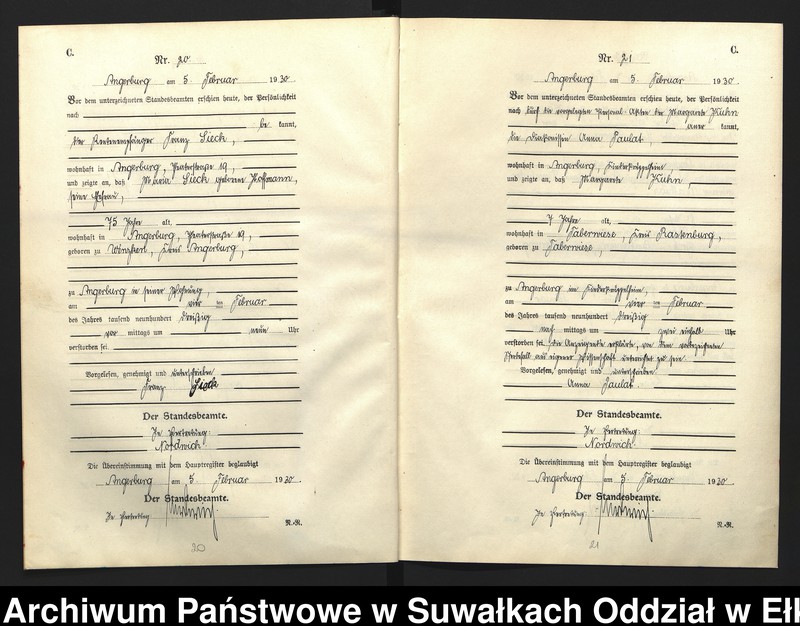 C.
Nr. 20
Angerburg am 5. Februar 1930
Vor dem unterzeichneten Standesbeamten erschien heute, der Persönlichkeit
nach
be kannt,
der Rentenempfänger Franz Sieck,
wohnhaft in Angerburg, Theaterstraße 19,
und zeigte an, daß Maria Sieck geborene Hoffmann,
seine Ehefrau,
75 Jahre alt,
wohnhaft in Angerburg, Theaterstraße 19,
geboren zu Kreis Angerburg,
zu Angerburg in seiner Wohnung,
am vier ten Februar
des Jahres tausend neunhundert dreißig
vor mittags um neun Uhr
verstorben sei.
Vorgelesen, genehmigt und unterschrieben
Franz Sieck
Der Standesbeamte.
In Vertretung:
Nordwich.
Die Übereinstimmung mit dem Hauptregister beglaubigt
Angerburg am 5. Februar 1930
Der Standesbeamte.
In Vertretung
N.-R.
20
C.
Nr. 21
Angerburg am 5. Februar 1930
Vor dem unterzeichneten Standesbeamten erschien heute, der Persönlichkeit
nach durch die vorgelegten Personal-Akten der Margarete Kuhn
aner kannt,
die Diakonissin Anna Paulat,
wohnhaft in Angerburg, Kinderkrüppelheim
und zeigte an, daß Margarete Kuhn,
7 Jahre alt,
wohnhaft in Taberwiese, Kreis Rastenburg,
geboren zu Taberwiese,
zu Angerburg im Kinderkrüppelheim,
am vier ten Februar
des Jahres tausend neunhundert dreißig
nach mittags um zwei einhalb Uhr
verstorben sei. Die Anzeigende erklärte, von dem vorbezeichneten
Sterbefall aus eigener Wissenschaft unterrichtet zu sein.
Vorgelesen, genehmigt und unterschrieben
Anna Paulat.
Der Standesbeamte.
In Vertretung:
Nordwich.
Die Übereinstimmung mit dem Hauptregister beglaubigt
Angerburg am 5. Februar 1930
Der Standesbeamte.
In Vertretung:
N.-R.
21
Archiwum Państwowe w Suwałkach Oddział w Ełk